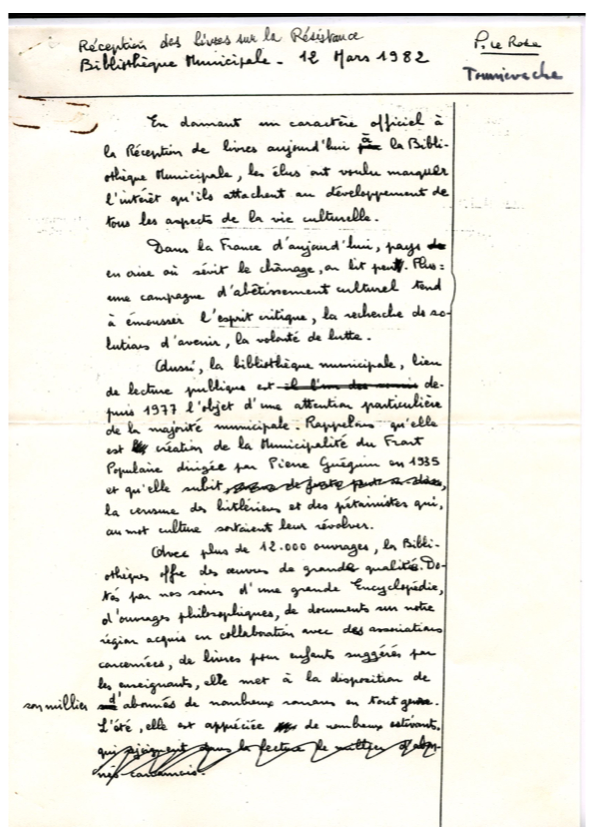 Réception des livres sur la Résistance
Bibliothèque Municipale - 12 Mars 1982
P. Le Rose
Tournevache
En donnant un caractère officiel à
la Réception de livres aujourd'hui à la Bibli-
othèque Municipale, les élus ont voulu marquer
l'intérêt qu'ils attachent au développement de
tous les aspects de la vie culturelle.
Dans la France d'aujourd'hui, pays
en crise où sévit le chômage, on lit peu. Plus :
une campagne d'abêtissement culturel tend
à émousser l'esprit critique, la recherche de so-
lutions d'avenir, la volonté de lutte.
Aussi, la bibliothèque municipale, lieu
de lecture publique est de-
puis 1977 l'objet d'une attention particulière
de la majorité municipale. Rappelons qu'elle
est création de la Municipalité du Front
Populaire dirigée par Pierre Guéguin en 1935
et qu'elle subit
la censure des hitlériens et des pétainistes qui,
au mot culture sortaient leur révolver.
Avec plus de 12.000 ouvrages, la Bibli-
othèque offre des œuvres de grande qualité. Do-
tée par nos soins d'une grande Encyclopédie,
d'ouvrages philosophiques, de documents sur notre
région acquis en collaboration avec des associations
concernées, de livres pour enfants suggérés par
les enseignants, elle met à la disposition de
son millier d'abonnés de nombreux romans en tout genre.
L'été, elle est appréciée de nombreux estivants,